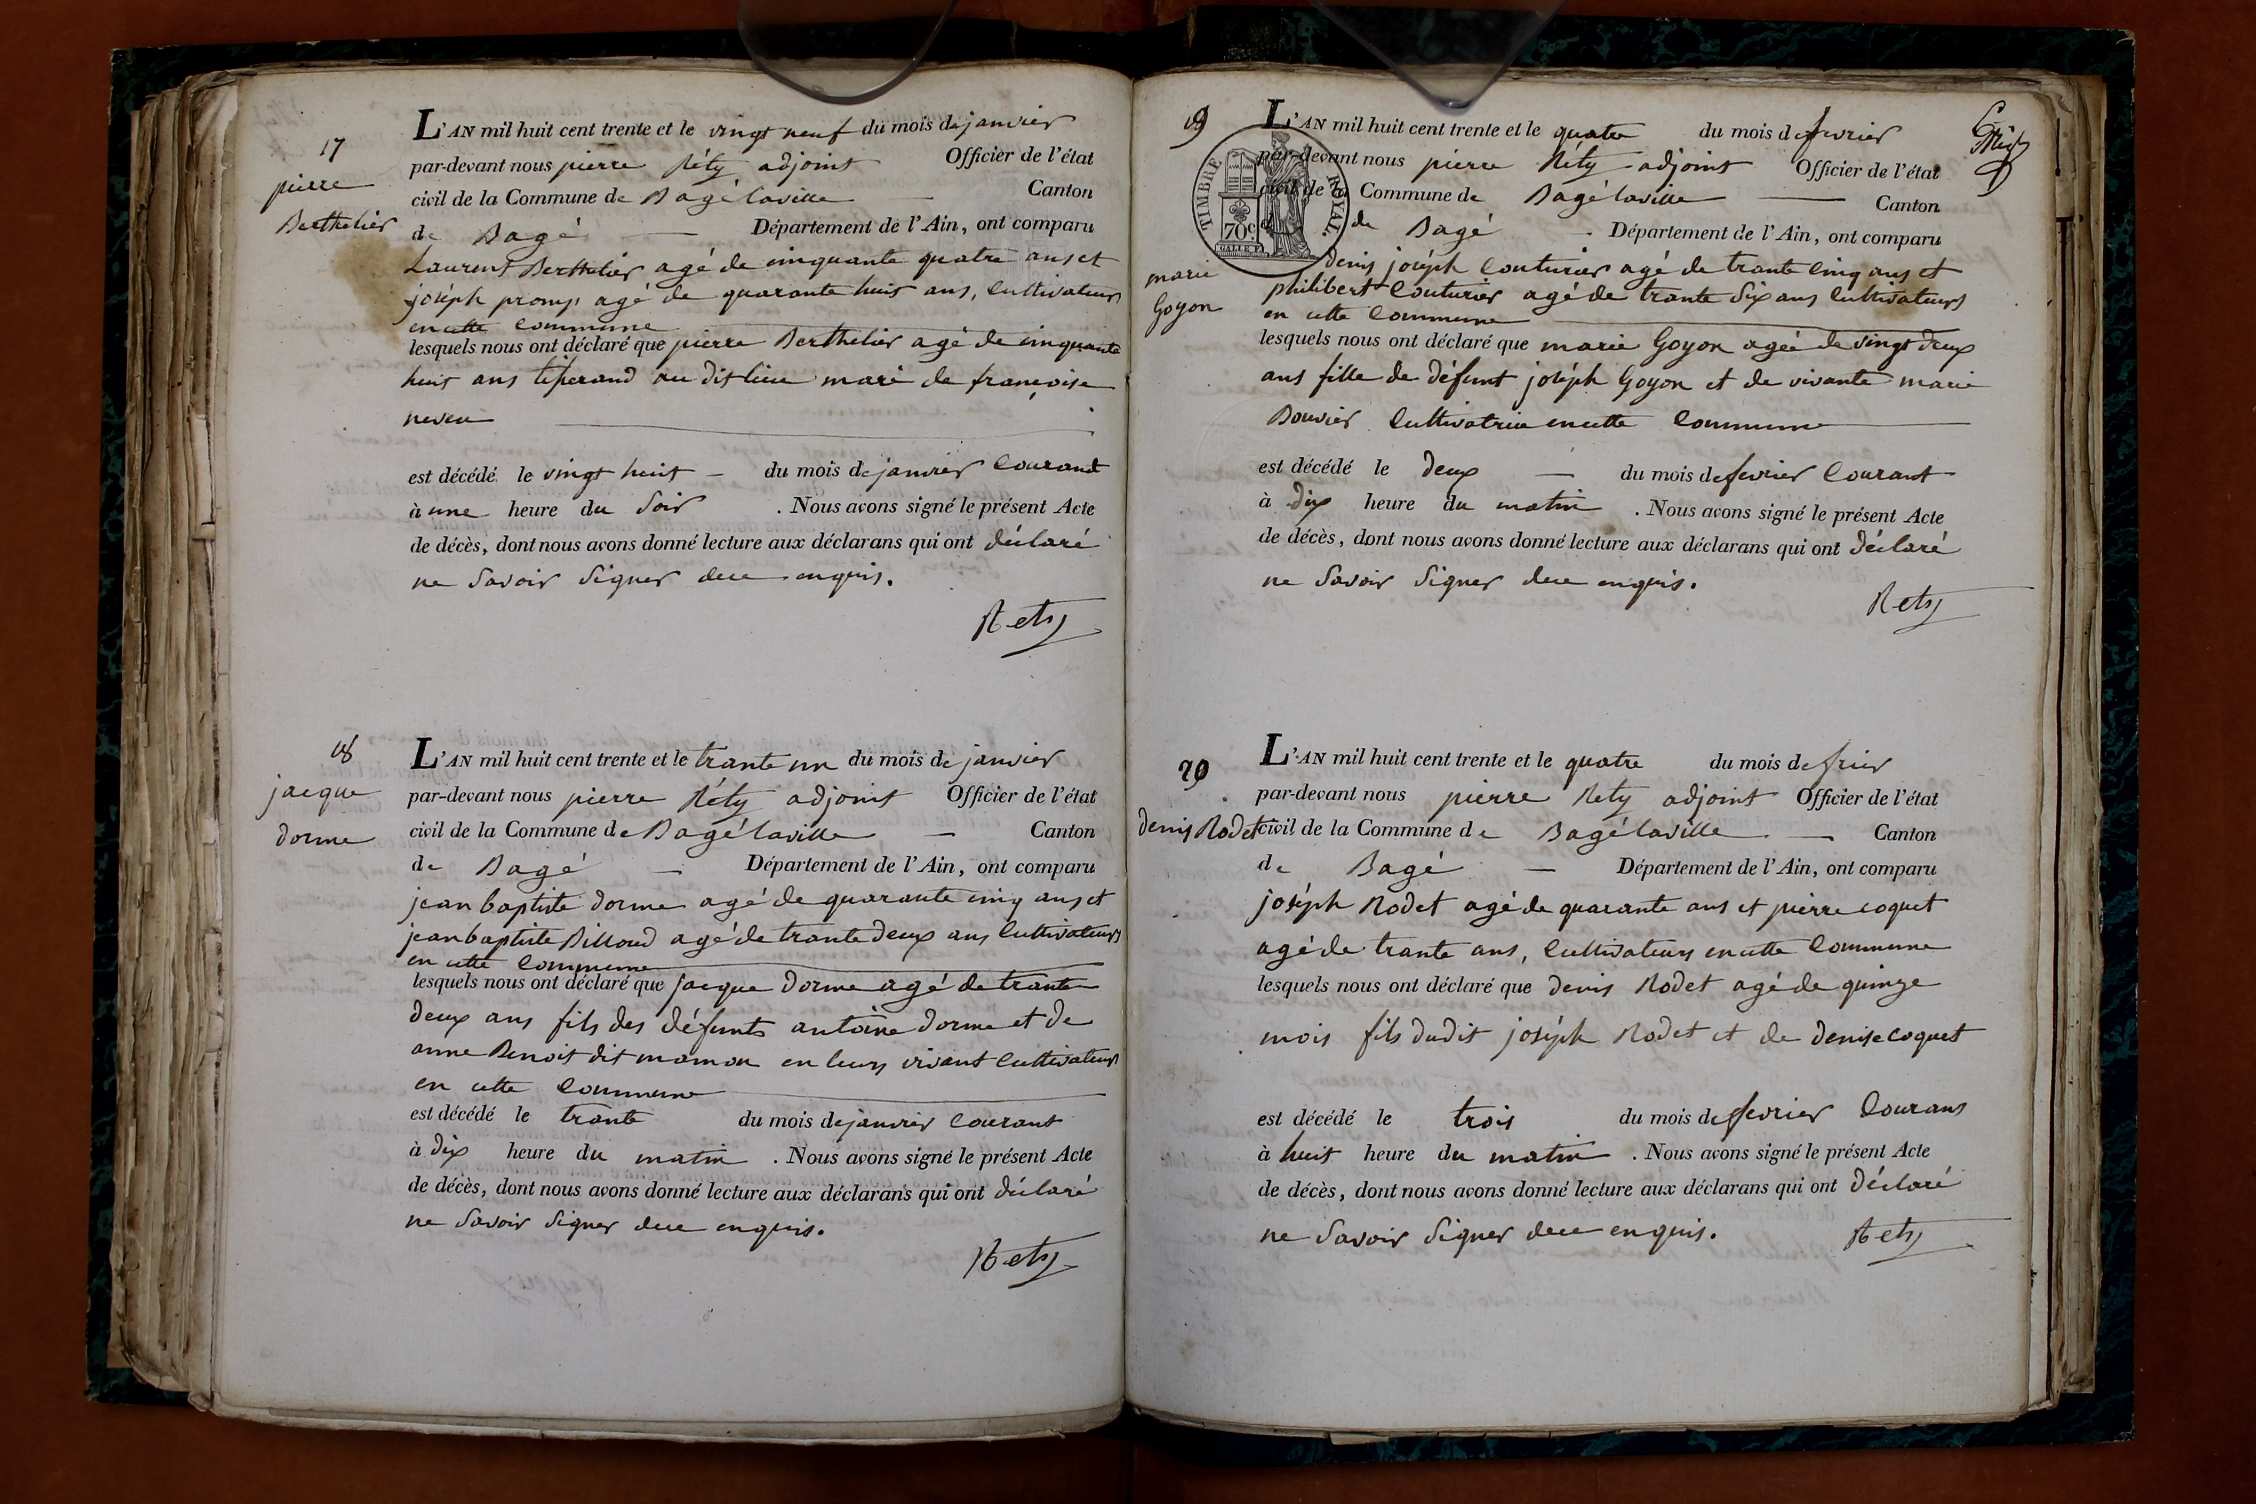 17
pierre
Berthelier
L'AN mil huit cent trente et le vingt neuf du mois de janvier
par-devant nous pierre Réty adjoint Officier de l'état
civil de la Commune de Bagélaville — Canton
de Bagé — Département de l'Ain, ont comparu
Laurent Berthelier agé de cinquante quatre ans et
joséph promp agé de quarante huit ans, Cultivateurs
en cette Commune
lesquels nous ont déclaré que pierre Berthelier agé de cinquante
huit ans tisserand au dit lieu marié de françoise
neveu
est décédé le vingt huit — du mois de janvier Courant
à une heure du Soir . Nous avons signé le présent Acte
de décès, dont nous avons donné lecture aux déclarans qui ont déclaré
ne Savoir Signer dece enquis.
Rety
18
jacque
dorme
L'AN mil huit cent trente et le trante un du mois de janvier
par-devant nous pierre Réty adjoint Officier de l'état
civil de la Commune de Bagélaville — Canton
de Bagé — Département de l'Ain, ont comparu
jean baptiste dorme agé de quarante cinq ans et
jean baptiste Billoud agé de trante deux ans Cultivateurs
en cette Commune
lesquels nous ont déclaré que jacque dorme agé de trante
deux ans fils des défunts antoine dorme et de
anne Benoit dit mamon en leurs vivant Cultivateurs
en cette Commune
est décédé le trante du mois de janvier Courant
à dix heure du matin . Nous avons signé le présent Acte
de décès, dont nous avons donné lecture aux déclarans qui ont déclaré
ne Savoir Signer dece enquis.
Rety
19
marie
Goyon
TIMBRE ROYAL.
70c
L'AN mil huit cent trente et le quatre du mois de fevrier
par-devant nous pierre Réty adjoint Officier de l'état
civil de la Commune de Bagélaville — Canton
de Bagé - Département de l'Ain, ont comparu
denis joséph Couturier agé de trante Cinq ans et
philibert Couturier agé de trante Six ans Cultivateurs
en cette Commune
lesquels nous ont déclaré que marie Goyon agée de vingt deux
ans fille de défunt joséph Goyon et de vivante marie
Bouvier Cultivatrice en cette Commune
est décédé le deux — du mois de fevrier Courant
à dix heure du matin . Nous avons signé le présent Acte
de décès, dont nous avons donné lecture aux déclarans qui ont déclaré
ne Savoir Signer dece enquis.
Rety
20
denis Rodet
L'AN mil huit cent trente et le quatre du mois de frier
par-devant nous pierre Rety adjoint Officier de l'état
civil de la Commune de Bagélaville — Canton
de Bagé — Département de l'Ain, ont comparu
joséph Rodet agé de quarante ans et pierre coquet
agé de trante ans, Cultivateurs en cette Commune
lesquels nous ont déclaré que denis Rodet agé de quinze
mois fils dudit joséph Rodet et de denise coquet
est décédé le trois du mois de fevrier Courans
à huit heure du matin . Nous avons signé le présent Acte
de décès, dont nous avons donné lecture aux déclarans qui ont déclaré
ne Savoir Signer dece enquis.
Rety